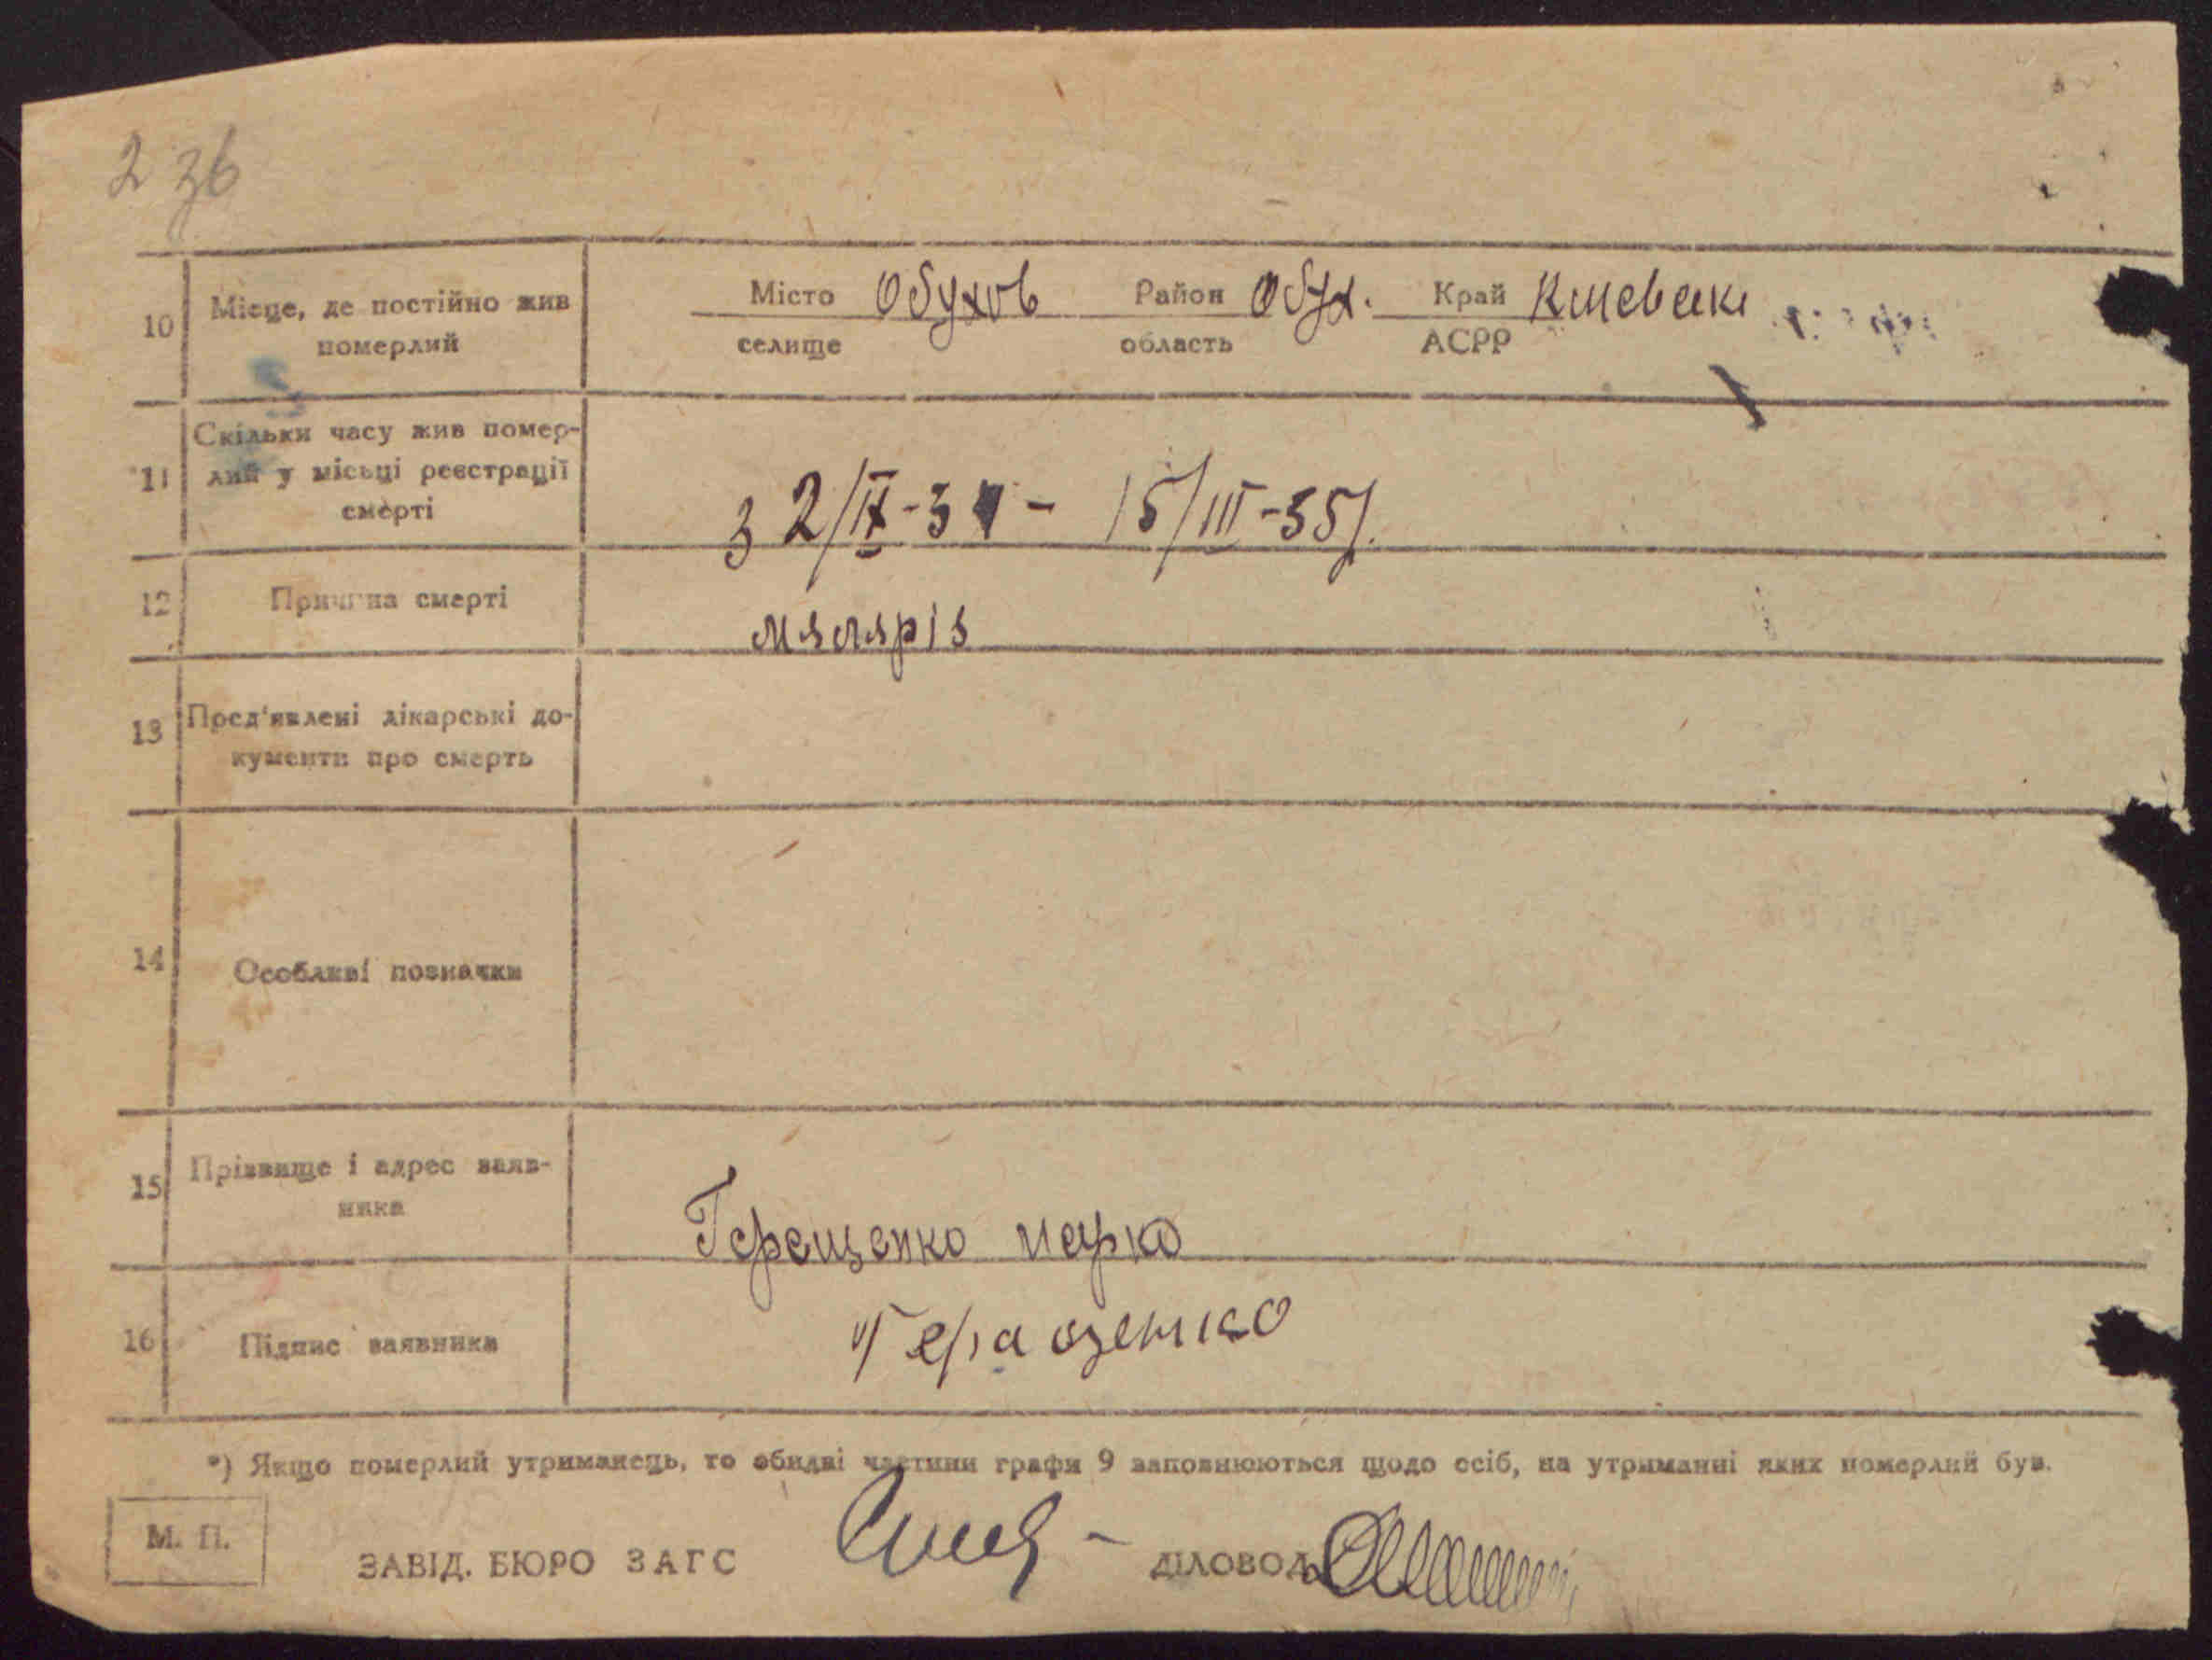 236
10 Місце, де постійно жив померлий Місто Обухов Район Обух. Край Киевськ
селище область АСРР
11 Скільки часу жив помер-
лий у місьці реєстрації
смерті
з 2/IX-34 - 15/III-35р.
12 Причина смерті
малярія
13 Пред'явлені лікарські до-
кументи про смерть
14 Особливі позначки
15 Прізвище і адрес заяв-
ника
Геращенко Марко
16 Підпис заявника Геращенко
*) Якщо померлий утриманець, то обидві частини графи 9 заповнюються щодо осіб, на утриманні яких померлий був.
М. П.
ЗАВІД. БЮРО ЗАГС ДІЛОВОД